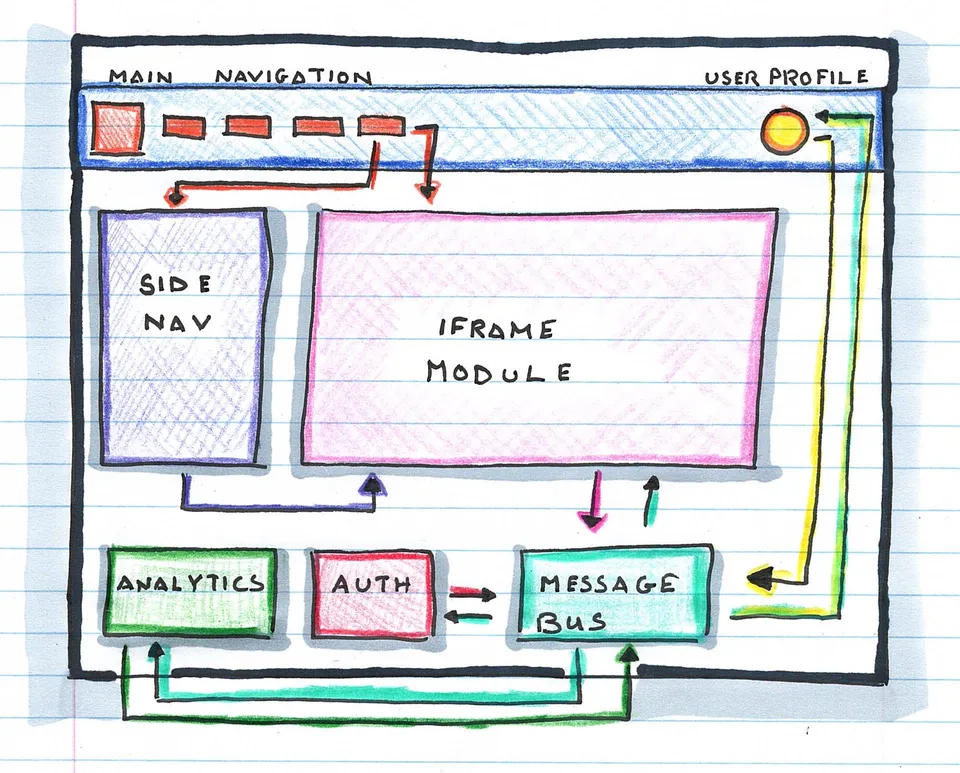 MAIN NAVIGATION
USER PROFILE
SIDE
NAV
IFRAME
MODULE
ANALYTICS
AUTH
MESSAGE
BUS